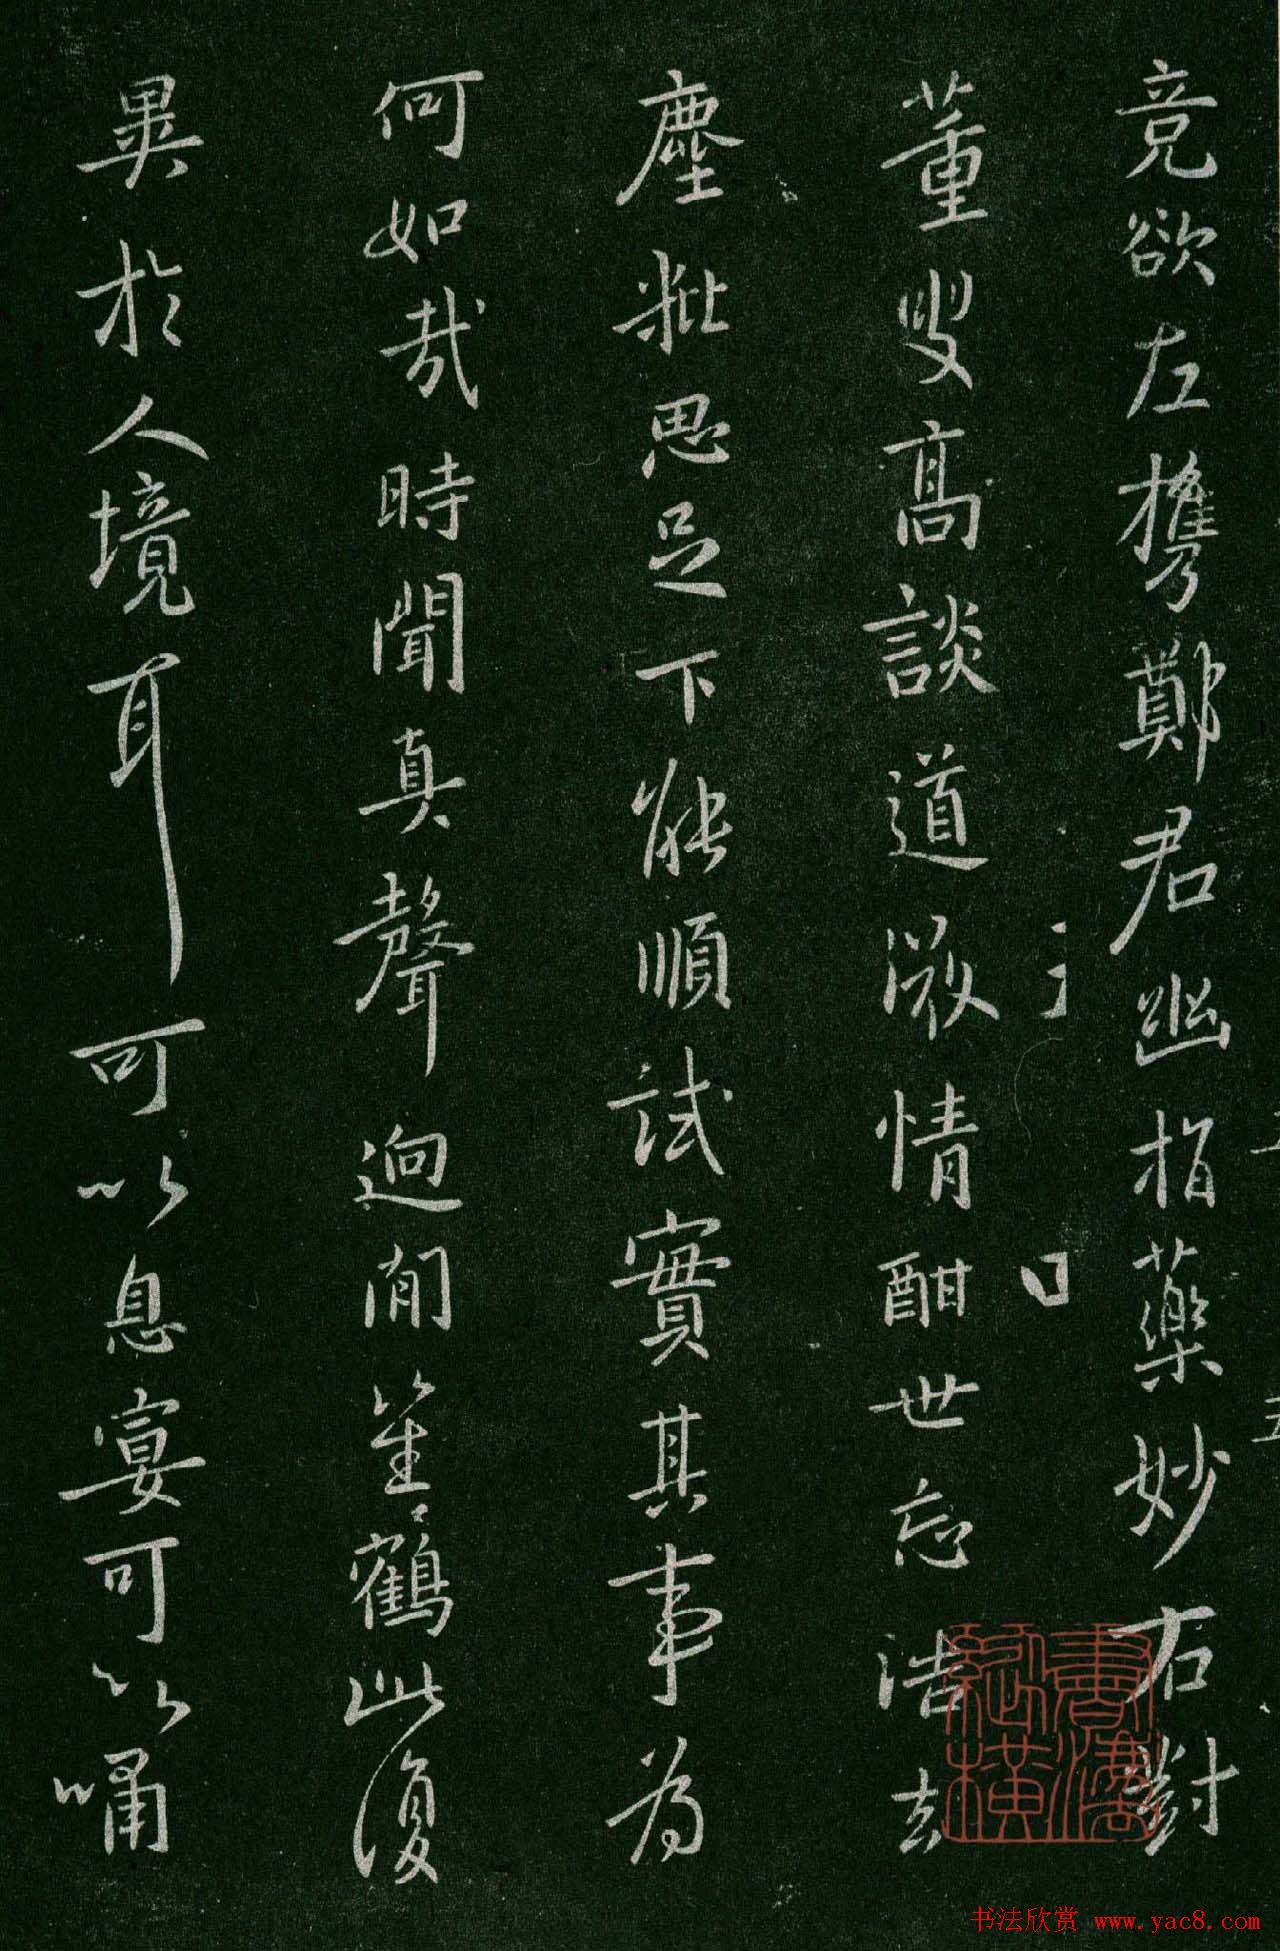 竟欲左攜鄭君幽指藥妙右對
董叟高談道溦情酣世忘浩去
塵粃思足下能順試實其事為
何如哉時聞真聲迥間笙鶴此復
異於人境耳可以息宴可以嘯
書法縱橫
书法欣赏 www.yac8.com